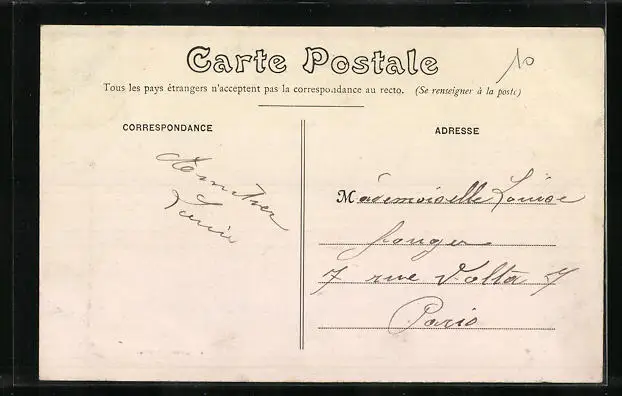 Carte Postale
10
Tous les pays étrangers n'acceptent pas la correspondance au recto. (Se renseigner à la poste)
CORRESPONDANCE
ADRESSE
Mademoiselle Louise
7 rue Volta 7
Paris